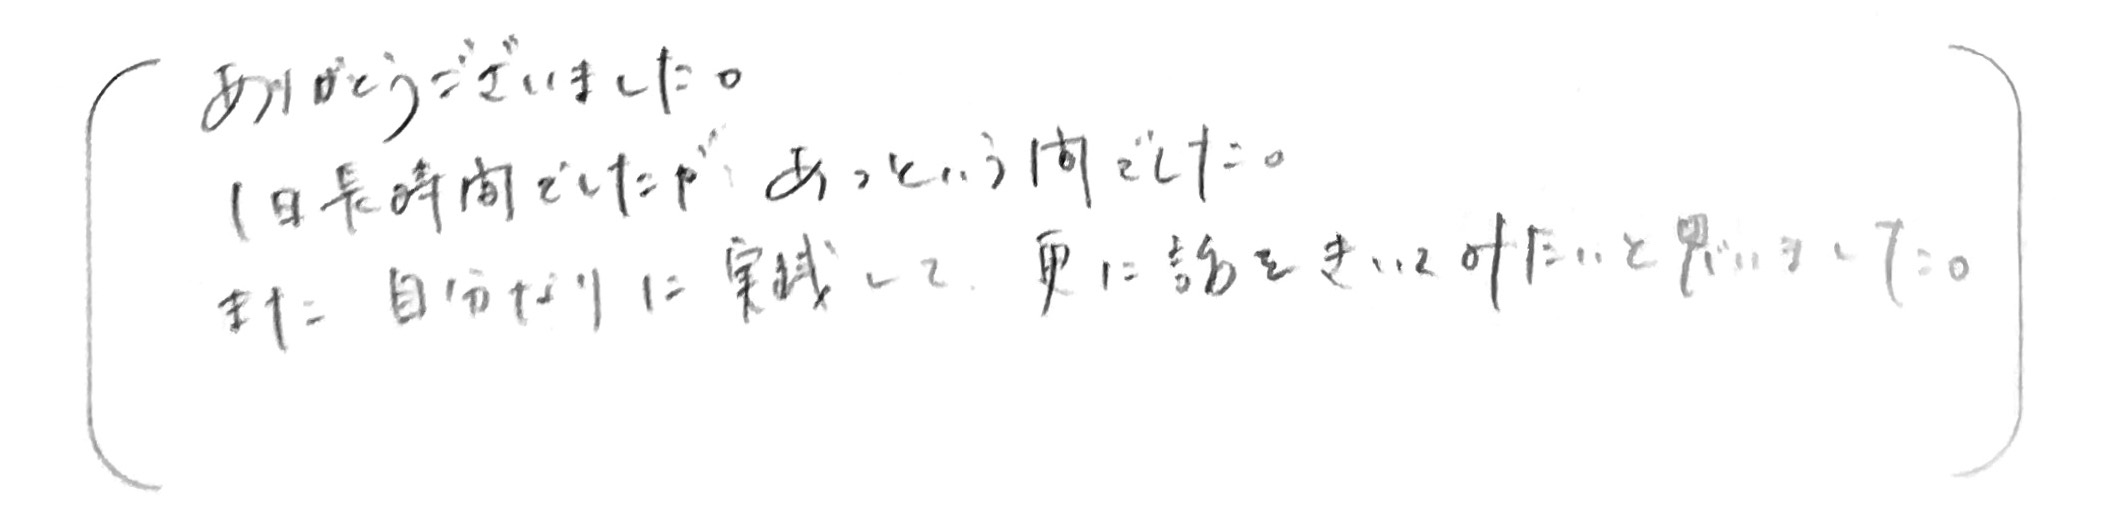 ありがとうございました。
1日長時間でしたが あっという間でした。
また 自分なりに実践して、更に話をきいてみたいと思いました。